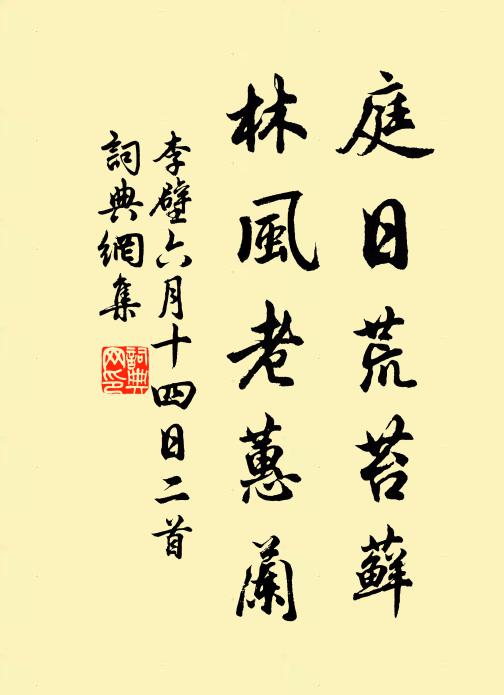 庭日荒苔蘚
林風老蕙蘭
李壁六月十四日二首
詞典網集
詞典
网印